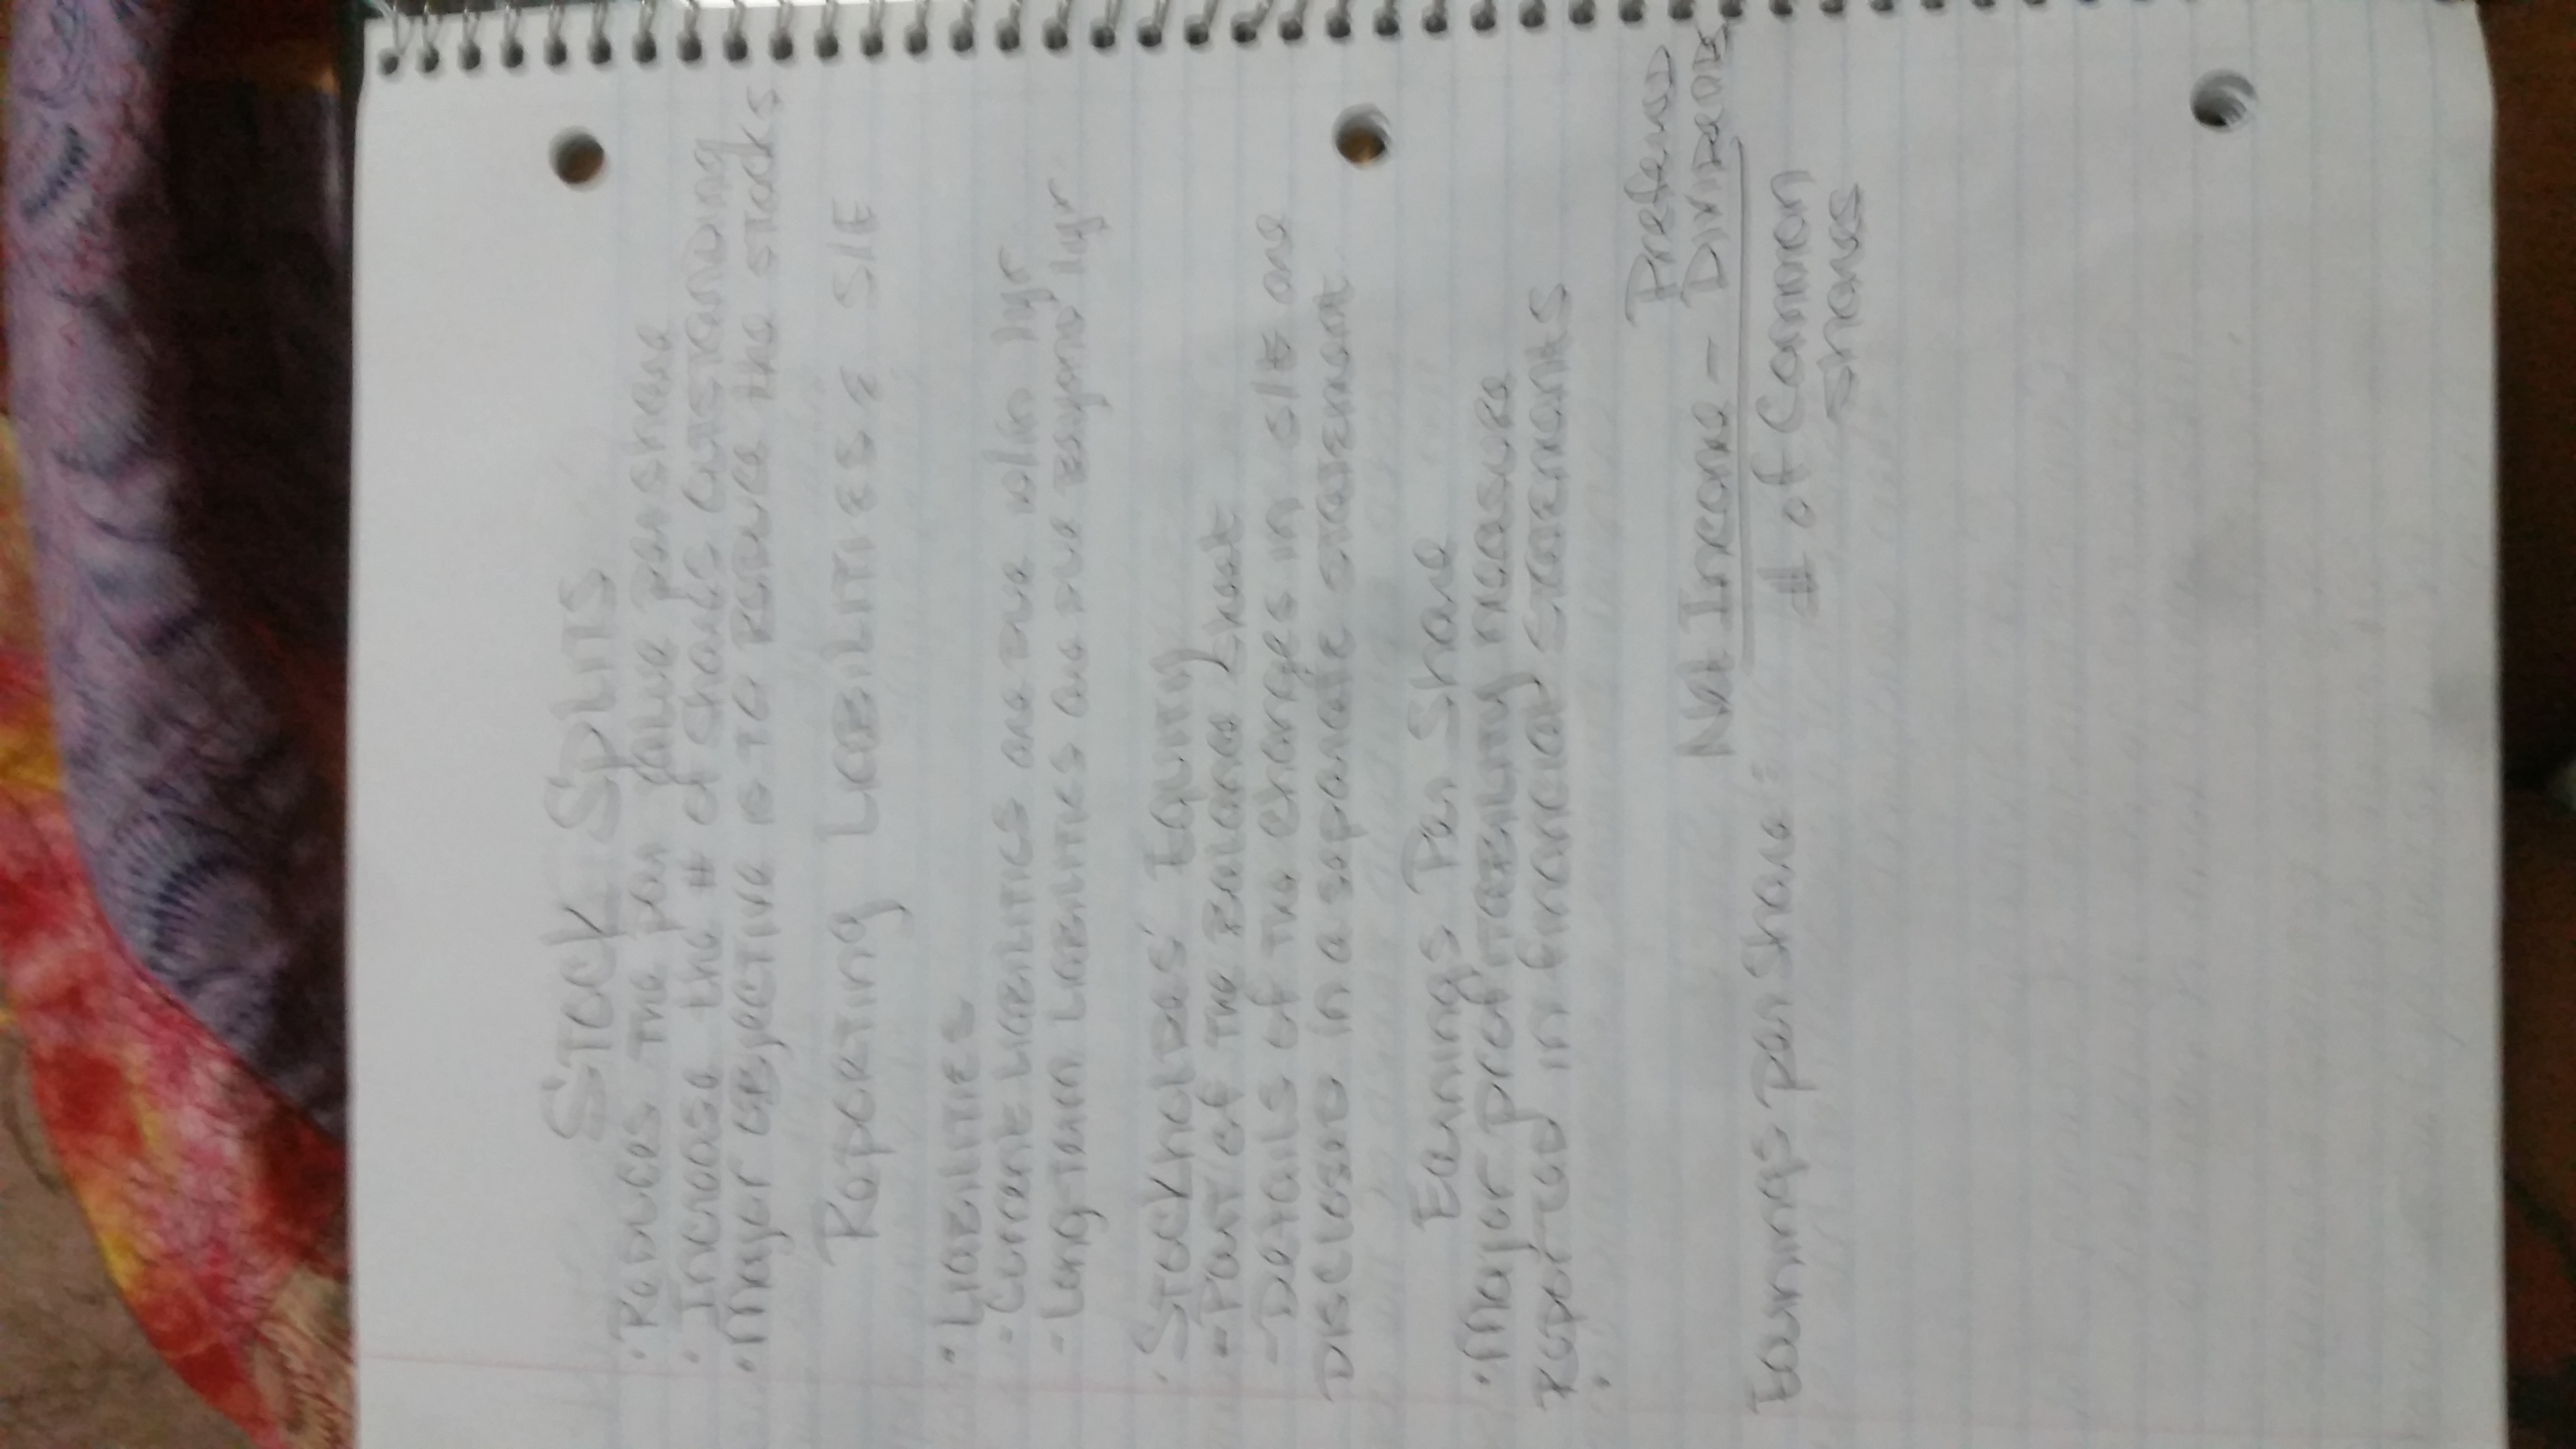 Stock Splits
• Reduces the par value per share
• Increase the # of shares outstanding
• Major objective is to reduce the stocks
Reporting Liabilities & S/E
• Liabilities
- Current liabilities are due w/in 1yr
- Long-term liabilities are due beyond 1yr
• Stockholders' Equity
- Part of the Balance Sheet
- Details of the changes in S/E are
disclosed in a separate statement
Earnings Per Share
• Major profitability measure
reported in financial statements
•
Preferred
Net Income - Dividends
Earnings per share = # of Common
shares